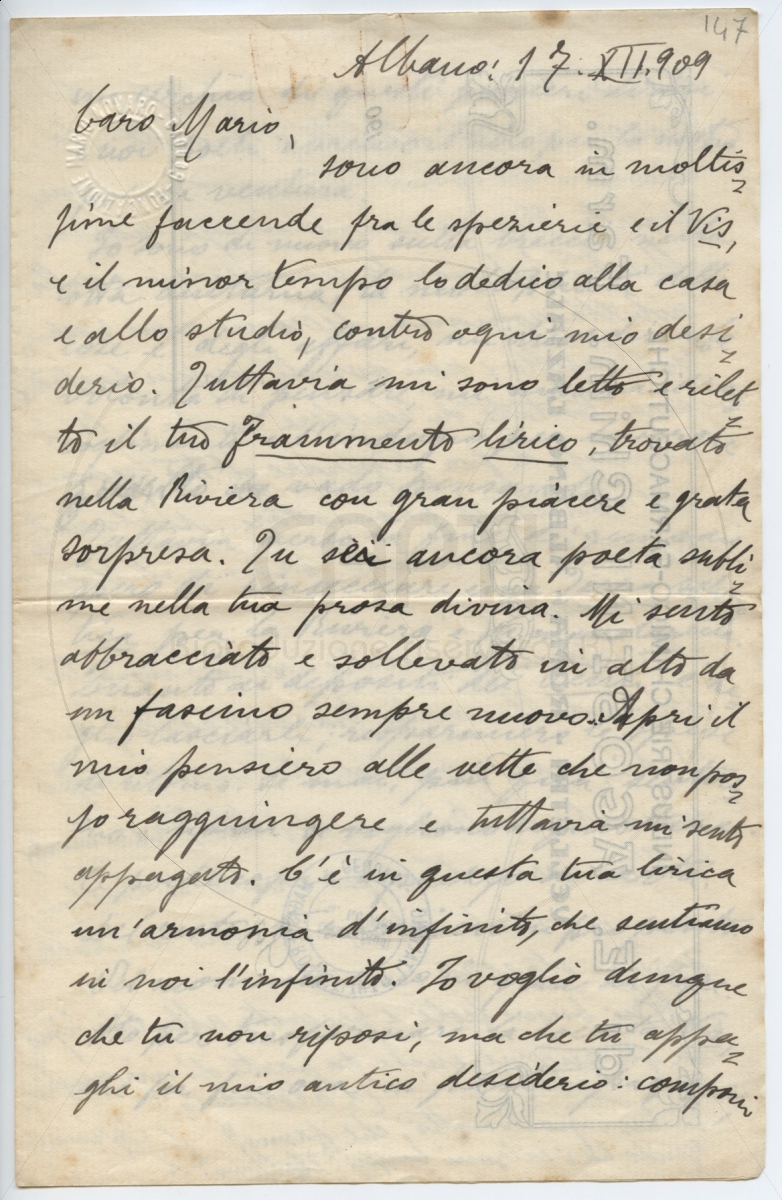 147
Albano: 17.XII.909
Caro Mario,
sono ancora in moltis=
sime faccende fra le spezierie e il Vis,
e il minor tempo lo dedico alla casa
e allo studio, contro ogni mio desi=
derio. Tuttavia mi sono letto e rilet=
to il tuo Frammento lirico, trovato
nella Riviera con gran piacere e grata
sorpresa. Tu sei ancora poeta subli=
me nella tua prosa divina. Mi sento
abbracciato e sollevato in alto da
un fascino sempre nuovo. Apri il
mio pensiero alle vette che non pos=
so raggiungere e tuttavia mi sento
appagato. C'è in questa tua lirica
un'armonia d'infinito, che sentiamo
in noi l'infinito. Io voglio dunque
che tu non riposi, ma che tu appa=
ghi il mio antico desiderio: componi